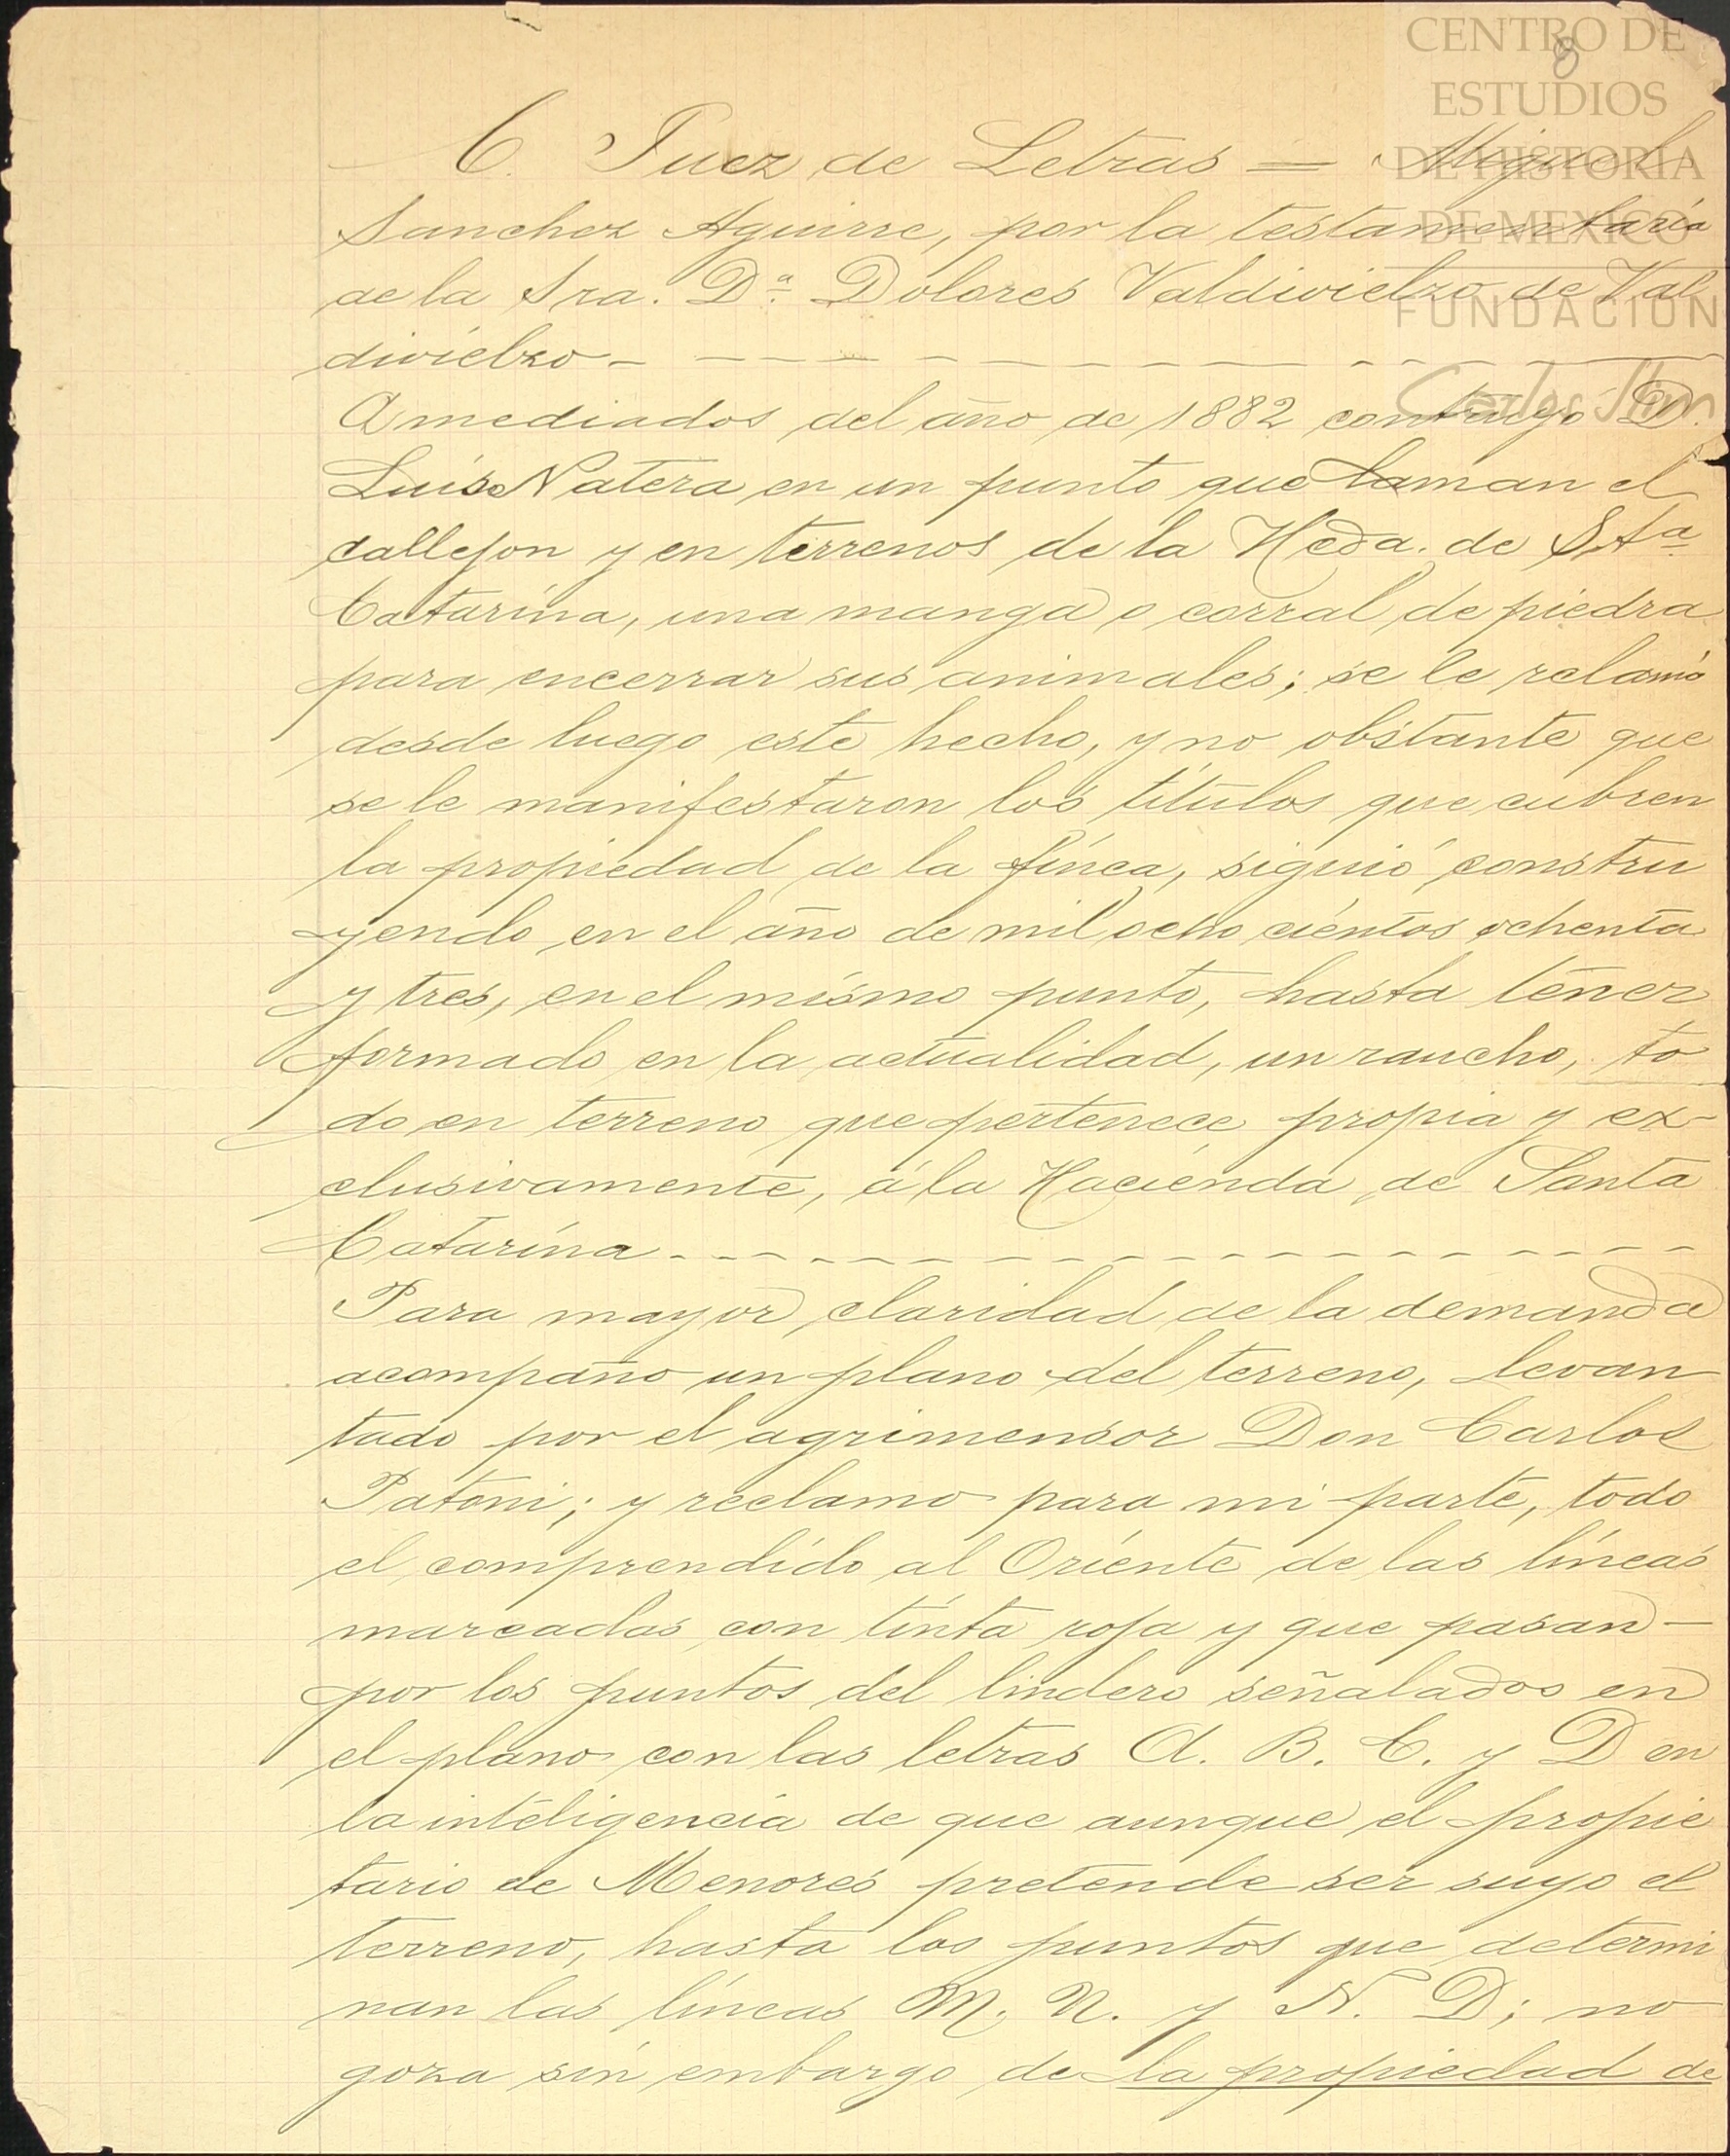 CENTRO DE
ESTUDIOS
DE HISTORIA
DE MEXICO
FUNDACION
Carlos Slim
8
C. Juez de Letras = Miguel
Sanchez Aguirre, por la testamentaría
de la Sra. Dª Dolores Valdivielzo de Val
divielzo -
A mediados del año de 1882 contruyo D.
Luis Natera en un punto que llaman el
callejon y en terrenos de la Hcda. de Sta
Catarina, una manga o corral de piedra
para encerrar sus animales; se le reclamó
desde luego este hecho, y no obstante que
se le manifestaron los títulos que cubren
la propiedad de la finca, siguió constru
yendo en el año de mil ocho cientos ochenta
y tres, en el mismo punto, hasta tener
formado en la actualidad, un rancho, to
do en terreno que pertenece propia y ex-
clusivamente, á la Hacienda de Santa
Catarina -
Para mayor claridad de la demanda
acompaño un plano del terreno, levan
tado por el agrimensor Don Carlos
Patoni; y reclamo para mi parte, todo
el comprendido al Oriente de las líneas
marcadas con tinta roja y que pasan -
por los puntos del lindero señalados en
el plano con las letras A. B. C. y D en
la inteligencia de que aunque el propie
tario de Menores pretende ser suyo el
terreno, hasta los puntos que determi
nan las líneas M. N. y N. D; no
goza sin embargo de la propiedad de